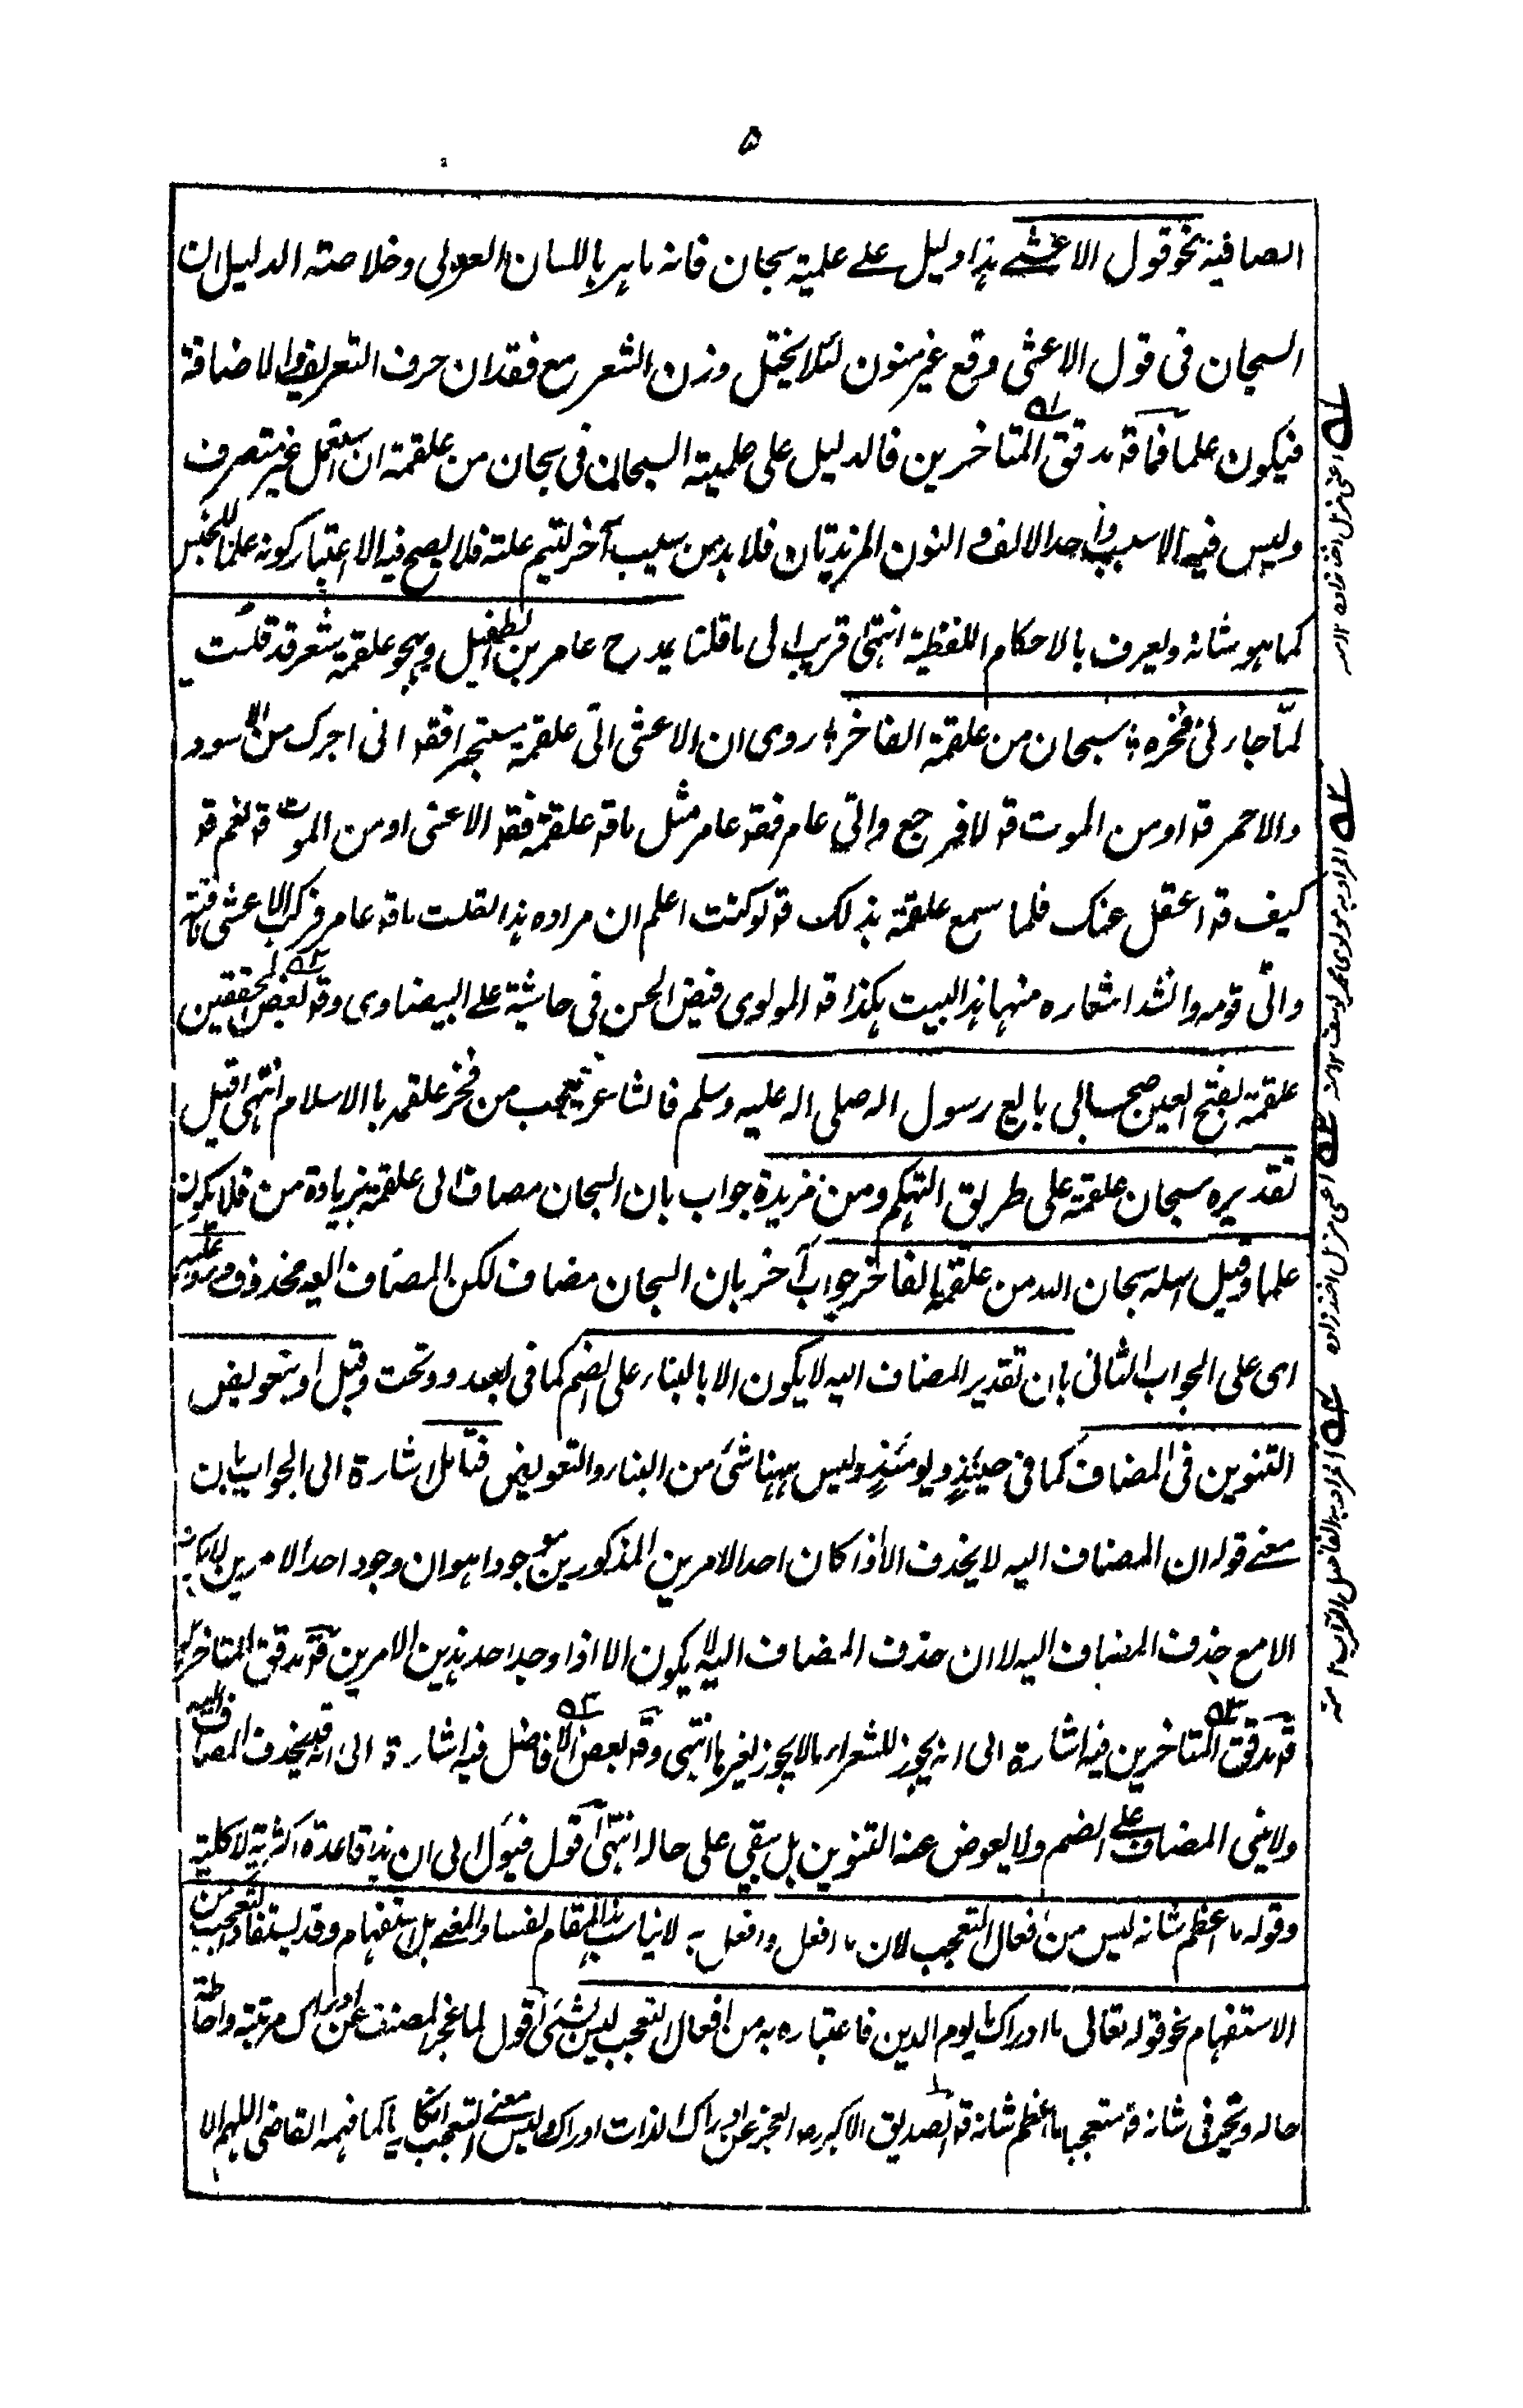 ۵
الصافية نحو قول الاعشے ہذا دليل علے علمية سبحان فانه ماہر باللسان العربی وخلاصته الدليل ان
السبحان فی قول الاعشی وقع غير منون لئلا يختل وزن الشعر مع فقدان حرف التعريف والاضافة
فيكون علما فما قہ مدقق المتاخرين فالدليل علی علمية السبحان فی سبحان من علقمة ان استعمل غير متصرف
وليس فيه الا سبب واحد الالف و النون المزيدتان فلا بد من سبب آخر لتتم علته فلا يصح فيه الا اعتبار كونه علما للجنس
كما ہو شانه ويعرف بالاحكام اللفظية انتهی قريب الی ما قلنا يمدح عامر بن الطفيل ويهجو علقمة شعر قد قلت
لما جاء نی فخرہ ؛ سبحان من علقمة الفاخر ؛ روی ان الاعشی اتی علقمة مستجيرا فقہ انی اجرك من الاسود
والاحمر قہ او من الموت قہ لا فرجع واتی عامر فقہ عامر مثل ما قہ علقمة فقہ الاعشی او من الموت قہ نعم قہ
كيف قہ اعقل عنك فلما سمع علقمة بذلك قہ لو كنت اعلم ان مراده ہذا لقلت ما قہ عامر فركب الاعشی ناقته
واتی قومه وانشد اشعاره منها ہذا البيت ہكذا قہ المولوی فيض الحسن فی حاشية علے البيضاوی وقہ بعض المحققين
علقمة بفتح العين صحابی بايع رسول الله صلی الله عليه وسلم فالشاعر يتعجب من فخر علقمه بالاسلام انتهی قيل
تقديره سبحان علقمة علی طريق التهكم ومن مزيدة جواب بان السبحان مضاف الی علقمة بزيادة من فلا يكون
علما وقيل اصله سبحان الله من علقمة الفاخر جواب آخر بان السبحان مضاف لكن المضاف اليه محذوف وہو عليه
ای علی الجواب الثانی بان تقدير المضاف اليه لا يكون الا بالبناء علی الضم كما فی بعد وتحت وقبل او بتعويض
التنوين فی المضاف كما فی حينئذٍ ويومئذٍ وليس ہہنا شئ من البناء والتعويض فتامل اشارة الی الجواب بان
معنے قوله ان المضاف اليه لا يحذف الا اذا كان احد الامرين المذكورين موجودا ہو ان وجود احد الامرين لا يكون
الا مع حذف المضاف اليه لا ان حذف المضاف اليه لا يكون الا اذا وجد احد ہذين الامرين قہ مدقق المتاخرين
قہ مدقق المتاخرين فيه اشارة الی انه يجوز للشعراء ما لا يجوز لغيرہا انتهی وقہ بعض الافاضل فيه اشارة الی انه قد يحذف المضاف اليه
ولا يبنی المضاف علے الضم ولا يعوض عنه التنوين بل يبقی علی حاله انتهی اقول فيؤل الی ان ہذا قاعدة اكثرية لا كلية
وقوله ما اعظم شانه ليس من افعال التعجب لان ما افعل وافعل به لا يناسب ہذا المقام لفساد المعنے بل استفهام وقد يستفاد التعجب من
الاستفهام نحو قوله تعالی ما ادراك ما يوم الدين فاعتباره به من افعال التعجب ليس بشئ اقول لما عجز المصنف عن ادراك مرتبته واحاطة
حاله وتحير فی شانه قہ متعجبا ما اعظم شانه قہ الصديق الاكبر رضہ العجز عن ادراك الذات ادراك وليس معنے التعجب انكاريا كما فهمه القاضی اللهم الا